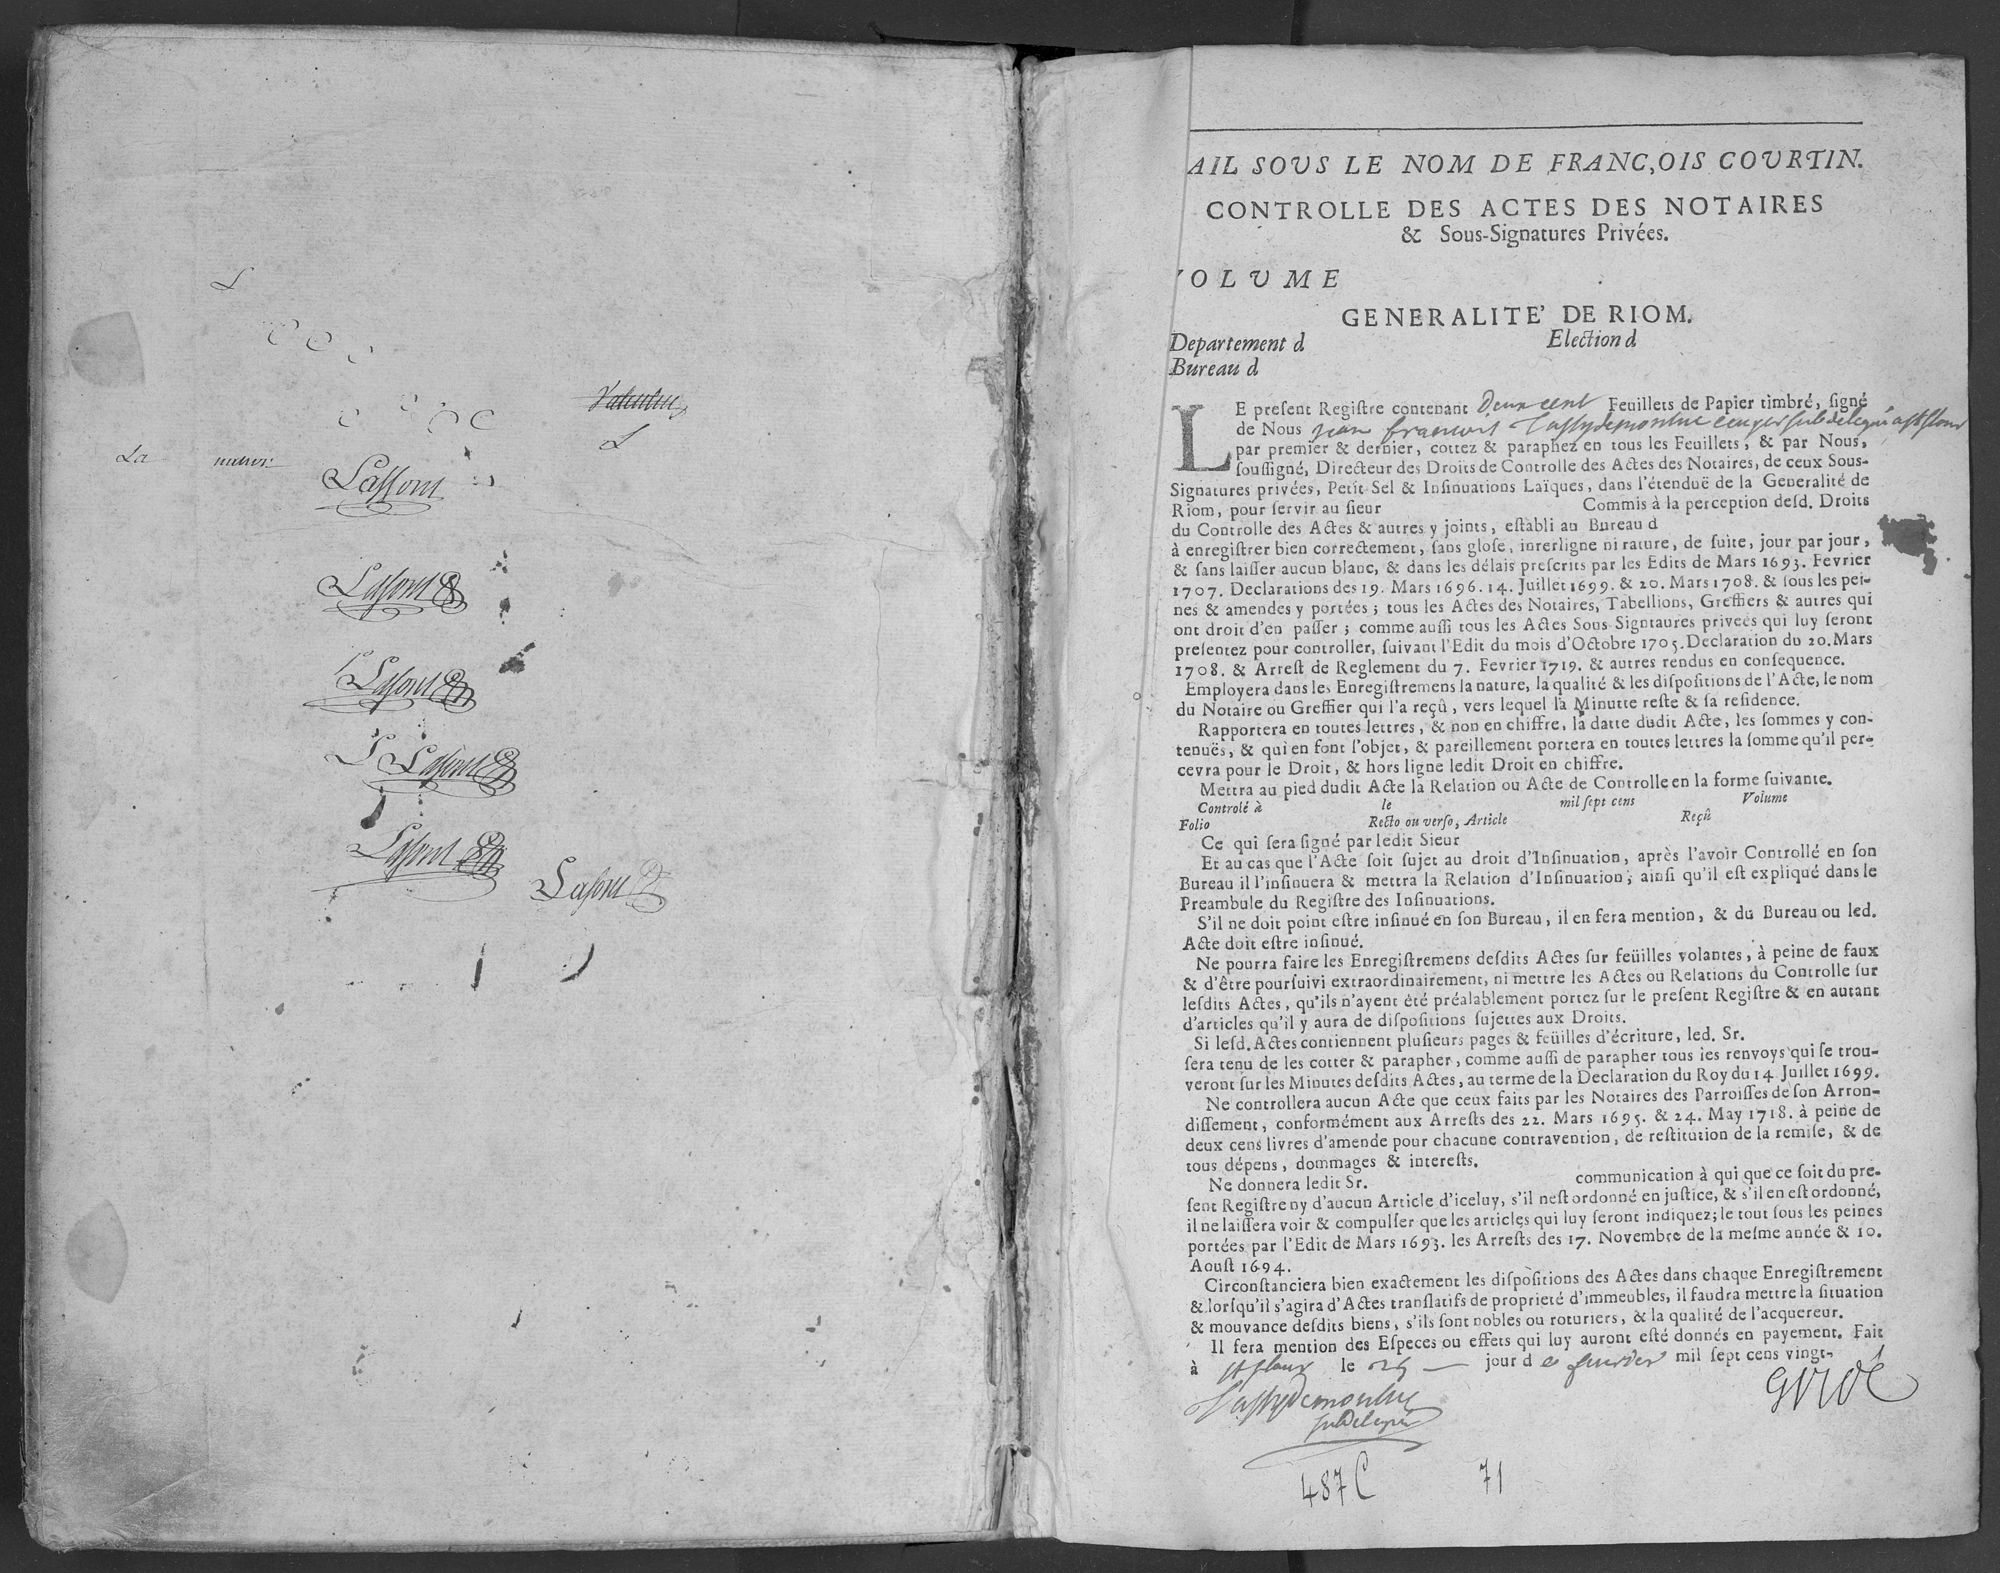 L
Valentin
L
La
Lassont
Lafont
Lafont
L Lafont
Lafont
Lafont
AIL SOUS LE NOM DE FRANC,OIS COURTIN.
CONTROLLE DES ACTES DES NOTAIRES
& Sous-Signatures Privées.
VOLUME
GENERALITE' DE RIOM.
Departement d Election d
Bureau d
LE present Registre contenant Deux cent Feuillets de Papier timbré, signé
de Nous jean francois Tassy de montluc subdelegué a st flour
par premier & dernier, cottez & paraphez en tous les Feuillets, & par Nous,
soussigné, Directeur des Droits de Controlle des Actes des Notaires, de ceux Sous-
Signatures privées, Petit Sel & Insinuations Laïques, dans l'étenduë de la Generalité de
Riom, pour servir au sieur Commis à la perception desd. Droits
du Controlle des Actes & autres y joints, establi au Bureau d
à enregistrer bien correctement, sans glose, inrerligne ni rature, de suite, jour par jour,
& sans laisser aucun blanc, & dans les délais prescrits par les Edits de Mars 1693. Fevrier
1707. Declarations des 19. Mars 1696. 14. Juillet 1699. & 20. Mars 1708. & sous les pei-
nes & amendes y portées ; tous les Actes des Notaires, Tabellions, Greffiers & autres qui
ont droit d'en passer ; comme aussi tous les Actes Sous-Signtaures privées qui luy seront
presentez pour controller, suivant l'Edit du mois d'Octobre 1705. Declaration du 20. Mars
1708. & Arrest de Reglement du 7. Fevrier 1719. & autres rendus en consequence.
Employera dans les Enregistremens la nature, la qualité & les dispositions de l'Acte, le nom
du Notaire ou Greffier qui l'a reçû, vers lequel la Minutte reste & sa residence.
Rapportera en toutes lettres, & non en chiffre, la datte dudit Acte, les sommes y con-
tenuës, & qui en font l'objet, & pareillement portera en toutes lettres la somme qu'il per-
cevra pour le Droit, & hors ligne ledit Droit en chiffre.
Mettra au pied dudit Acte la Relation ou Acte de Controlle en la forme suivante.
Controlé à le mil sept cens Volume
Folio Recto ou verso, Article Reçû
Ce qui sera signé par ledit Sieur
Et au cas que l'Acte soit sujet au droit d'Insinuation, après l'avoir Controllé en son
Bureau il l'insinuera & mettra la Relation d'Insinuation ; ainsi qu'il est expliqué dans le
Preambule du Registre des Insinuations.
S'il ne doit point estre insinué en son Bureau, il en fera mention, & du Bureau ou led.
Acte doit estre insinué.
Ne pourra faire les Enregistremens desdits Actes sur feüilles volantes, à peine de faux
& d'être poursuivi extraordinairement, ni mettre les Actes ou Relations du Controlle sur
lesdits Actes, qu'ils n'ayent été préalablement portez sur le present Registre & en autant
d'articles qu'il y aura de dispositions sujettes aux Droits.
Si lesd. Actes contiennent plusieurs pages & feüilles d'écriture, led. Sr.
sera tenu de les cotter & parapher, comme aussi de parapher tous les renvoys qui se trou-
veront sur les Minutes desdits Actes, au terme de la Declaration du Roy du 14. Juillet 1699.
Ne controllera aucun Acte que ceux faits par les Notaires des Parroisses de son Arron-
dissement, conformément aux Arrests des 22. Mars 1695. & 24. May 1718. à peine de
deux cens livres d'amende pour chacune contravention, de restitution de la remise, & de
tous dépens, dommages & interests.
Ne donnera ledit Sr. communication à qui que ce soit du pre-
sent Registre ny d'aucun Article d'iceluy, s'il nest ordonné en justice, & s'il en est ordonné,
il ne laissera voir & compulser que les articles qui luy seront indiquez; le tout sous les peines
portées par l'Edit de Mars 1693. les Arrests des 17. Novembre de la mesme année & 10.
Aoust 1694.
Circonstanciera bien exactement les dispositions des Actes dans chaque Enregistrement
& lorsqu'il s'agira d'Actes translatifs de proprieté d'immeubles, il faudra mettre la situation
& mouvance desdits biens, s'ils sont nobles ou roturiers, & la qualité de l'acquereur.
Il fera mention des Especes ou effets qui luy auront esté donnés en payement. Fait
à st flour le 25 jour de feuvrier mil sept cens vingt-
Tassy de montluc
subdelegué
487 C 71